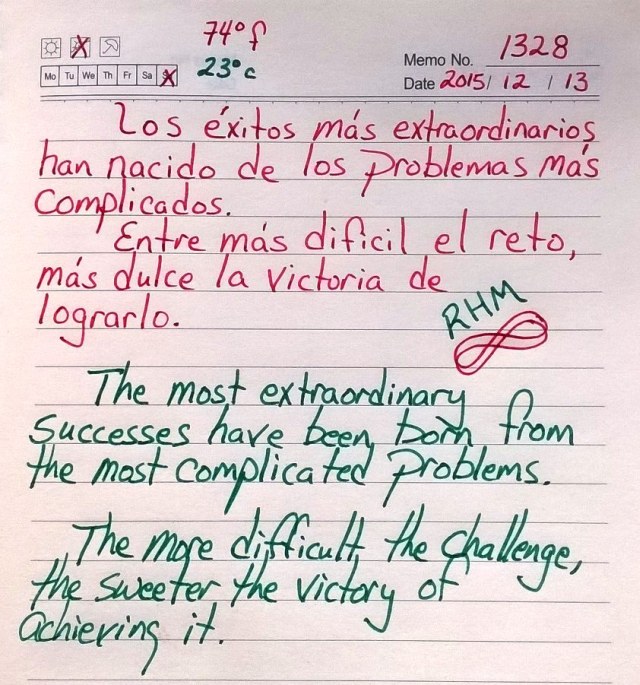 74° f
23° c
Memo No. 1328
Mo Tu We Th Fr Sa
Date 2015/ 12 / 13
Los éxitos más extraordinarios
han nacido de los problemas más
complicados.
Entre más dificil el reto,
más dulce la victoria de
lograrlo.
RHM
The most extraordinary
successes have been born from
the most complicated problems.
The more difficult the challenge,
the sweeter the victory of
achieving it.